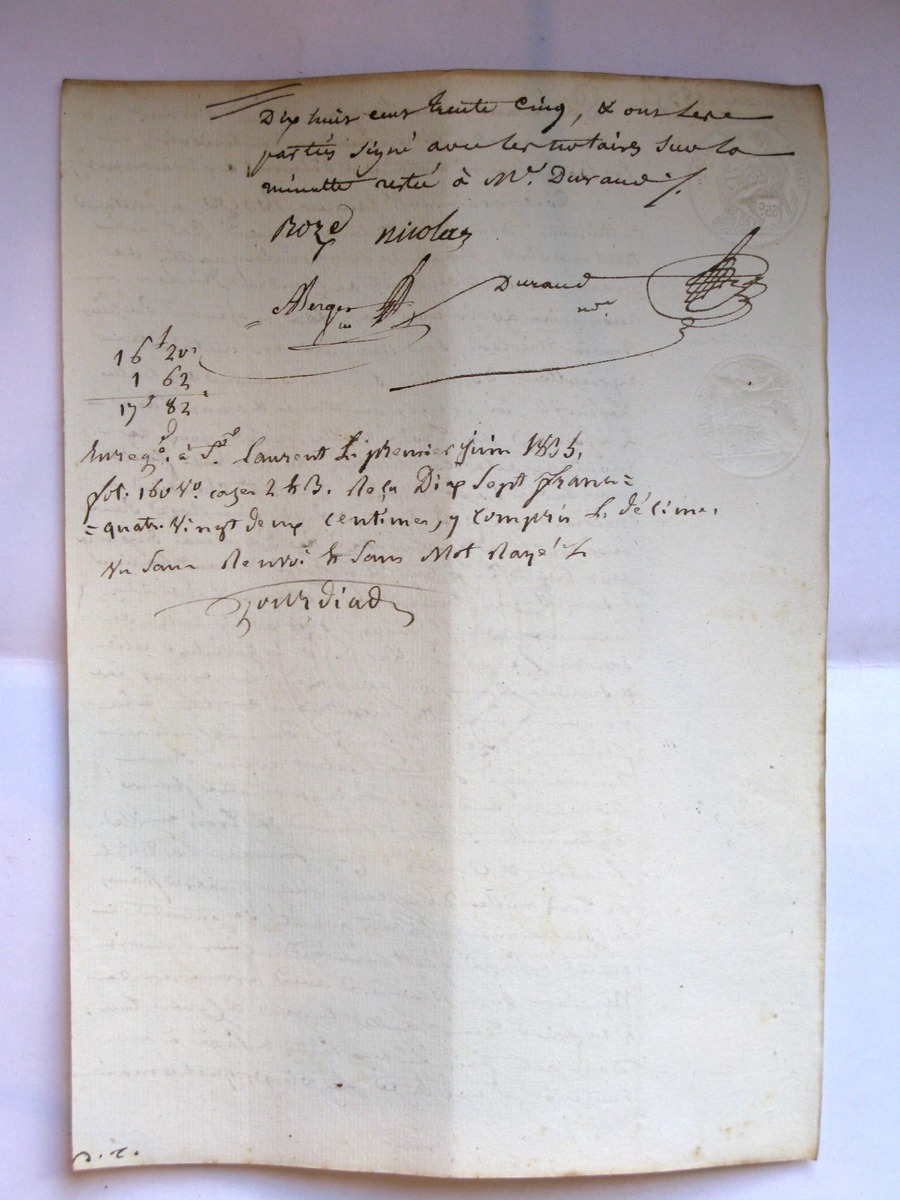 Dix huit cent trente cinq, & ont les
parties signé avec les notaires sur la
minutte restée à Me. Durand /.
Roze nicolas
ABerger Durand
nre.
16f 20
1 62
17f 82
Enregé. à St. Laurent le premier juin 1835,
fol. 160 Vo. cases 2 & 3. Reçu Dix Sept francs
= quatre vingt deux centimes, y compris le décime.
Vu sans Renvoi & sans Mot Rayé /.